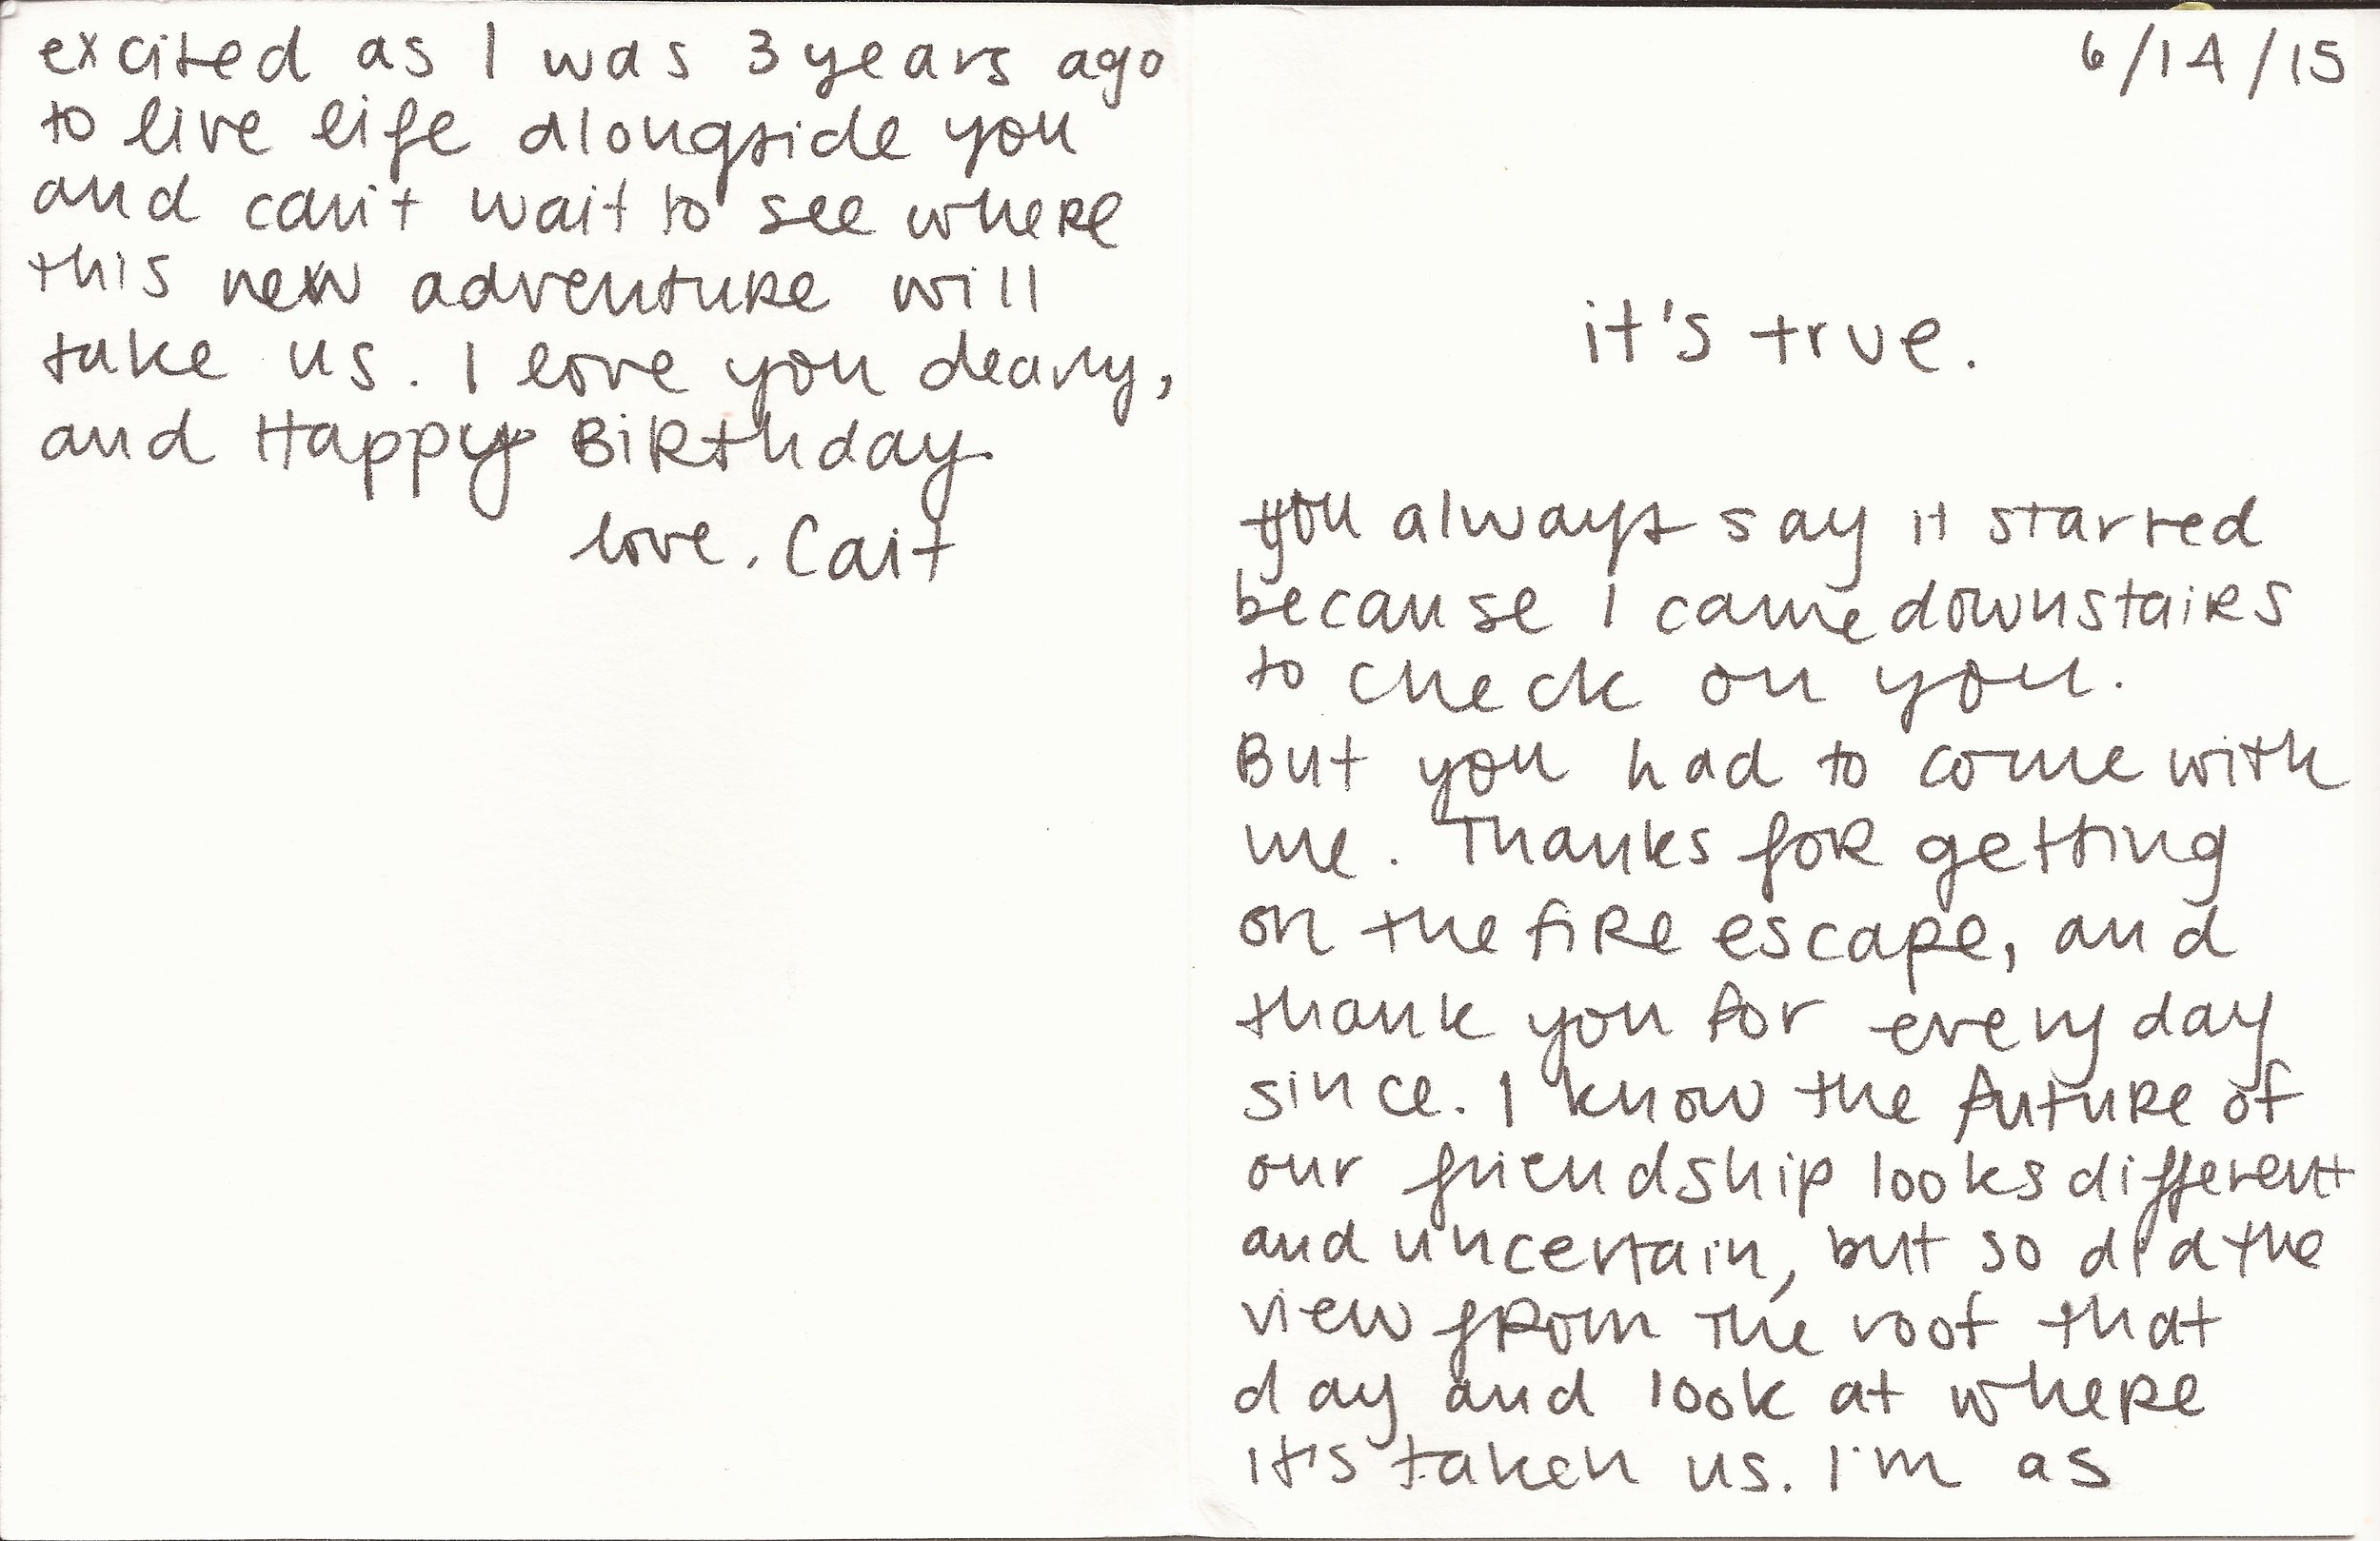 6/14/15
it's true.
you always say it started
because I came downstairs
to check on you.
But you had to come with
me. Thanks for getting
on the fire escape, and
thank you for every day
since. I know the future of
our friendship looks different
and uncertain, but so did the
view from the roof that
day and look at where
it's taken us. I'm as
excited as I was 3 years ago
to live life alongside you
and can't wait to see where
this new adventure will
take us. I love you deary,
and Happy Birthday.
love, Cait